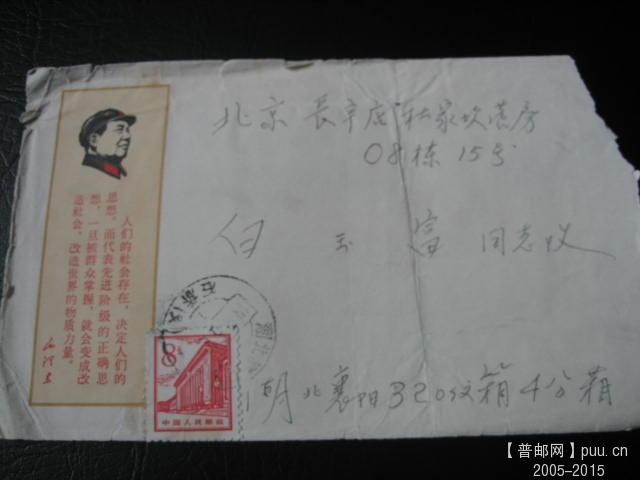 人们的社会存在，决定人们的
思想。而代表先进阶级的正确思
想，一旦被群众掌握，就会变成改
造社会、改造世界的物质力量。
毛泽东
北京 長辛店 杜家坎营房
08栋 15号
白 玉 富 同志收
8
中国人民邮政
湖北襄阳320信箱4分箱
【普邮网】puu.cn
2005-2015